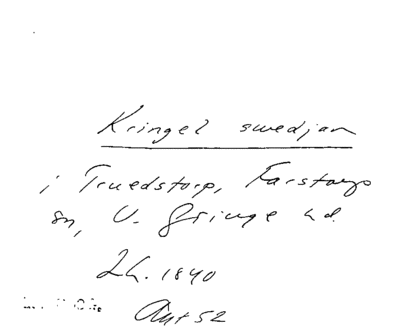 Kringel swedjan
i Truedstorp, Farstorps
sn, V. Göinge hd.
2h. 1840
Ant 52